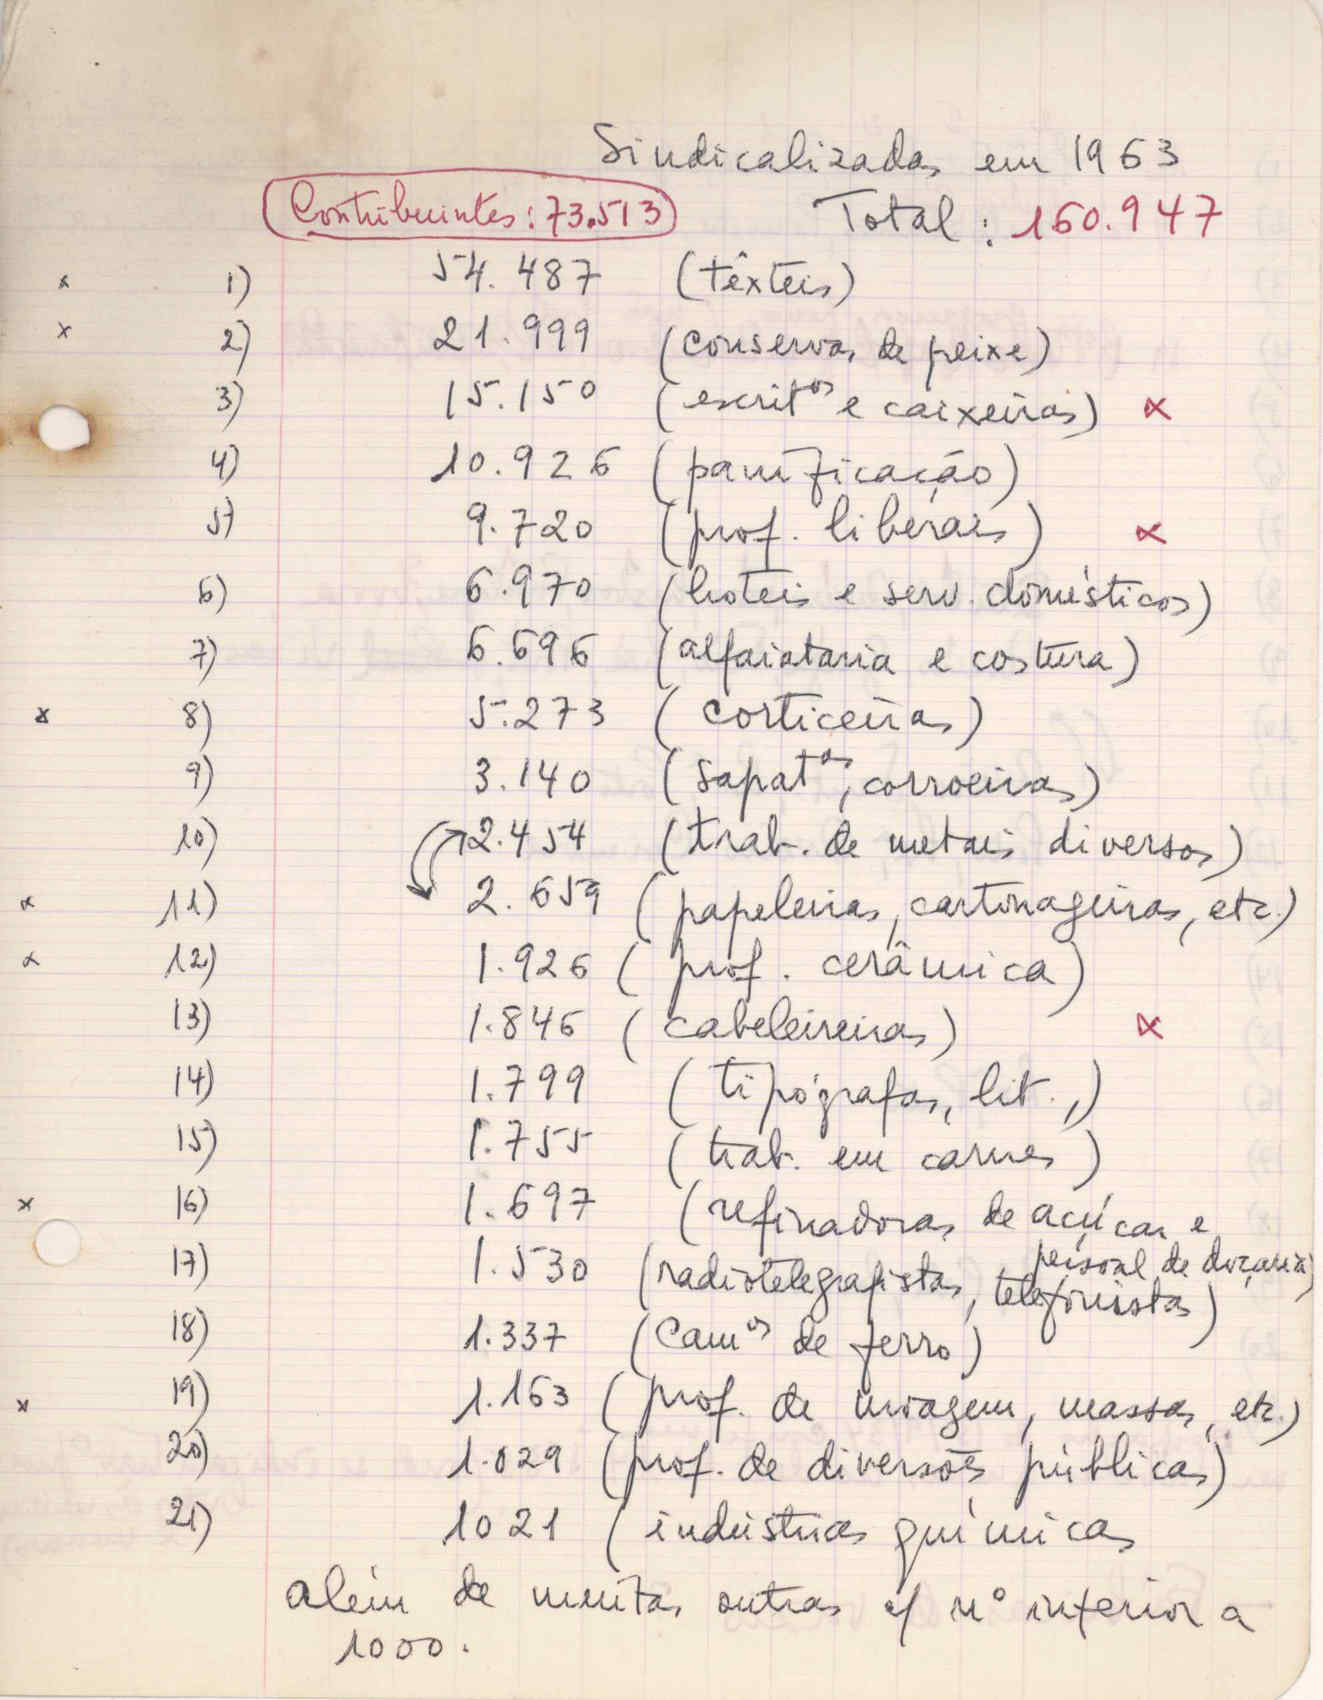 Sindicalizadas em 1963
Contribuintes: 73.513
Total: 160.947
x 1) 54.487 (têxteis)
x 2) 21.999 (conservas de peixe)
3) 15.150 (escritºs e caixeiras) x
4) 10.926 (panificação)
5) 9.720 (prof. liberais) x
6) 6.970 (hoteis e serv. domésticos)
7) 6.696 (alfaiataria e costura)
x 8) 5.273 (corticeiras)
9) 3.140 (sapatªs, corroeiras)
10) 2.454 (trab. de metais diversos)
x 11) 2.659 (papeleiras, cartonageiras, etc.)
x 12) 1.926 (prof. cerâmica)
13) 1.846 (cabeleireiras) x
14) 1.799 (tipógrafas, lit.,)
15) 1.755 (trab. em carnes)
x 16) 1.697 (refinadoras de açúcar e
pessoal de doçaria)
17) 1.530 (radiotelegrafistas, telefonistas)
18) 1.337 (Camºs de ferro)
x 19) 1.163 (prof. de moagem, massas, etc.)
20) 1.029 (prof. de diversões públicas)
21) 1021 (indústrias químicas
além de muitas outras c/ nº inferior a
1000.